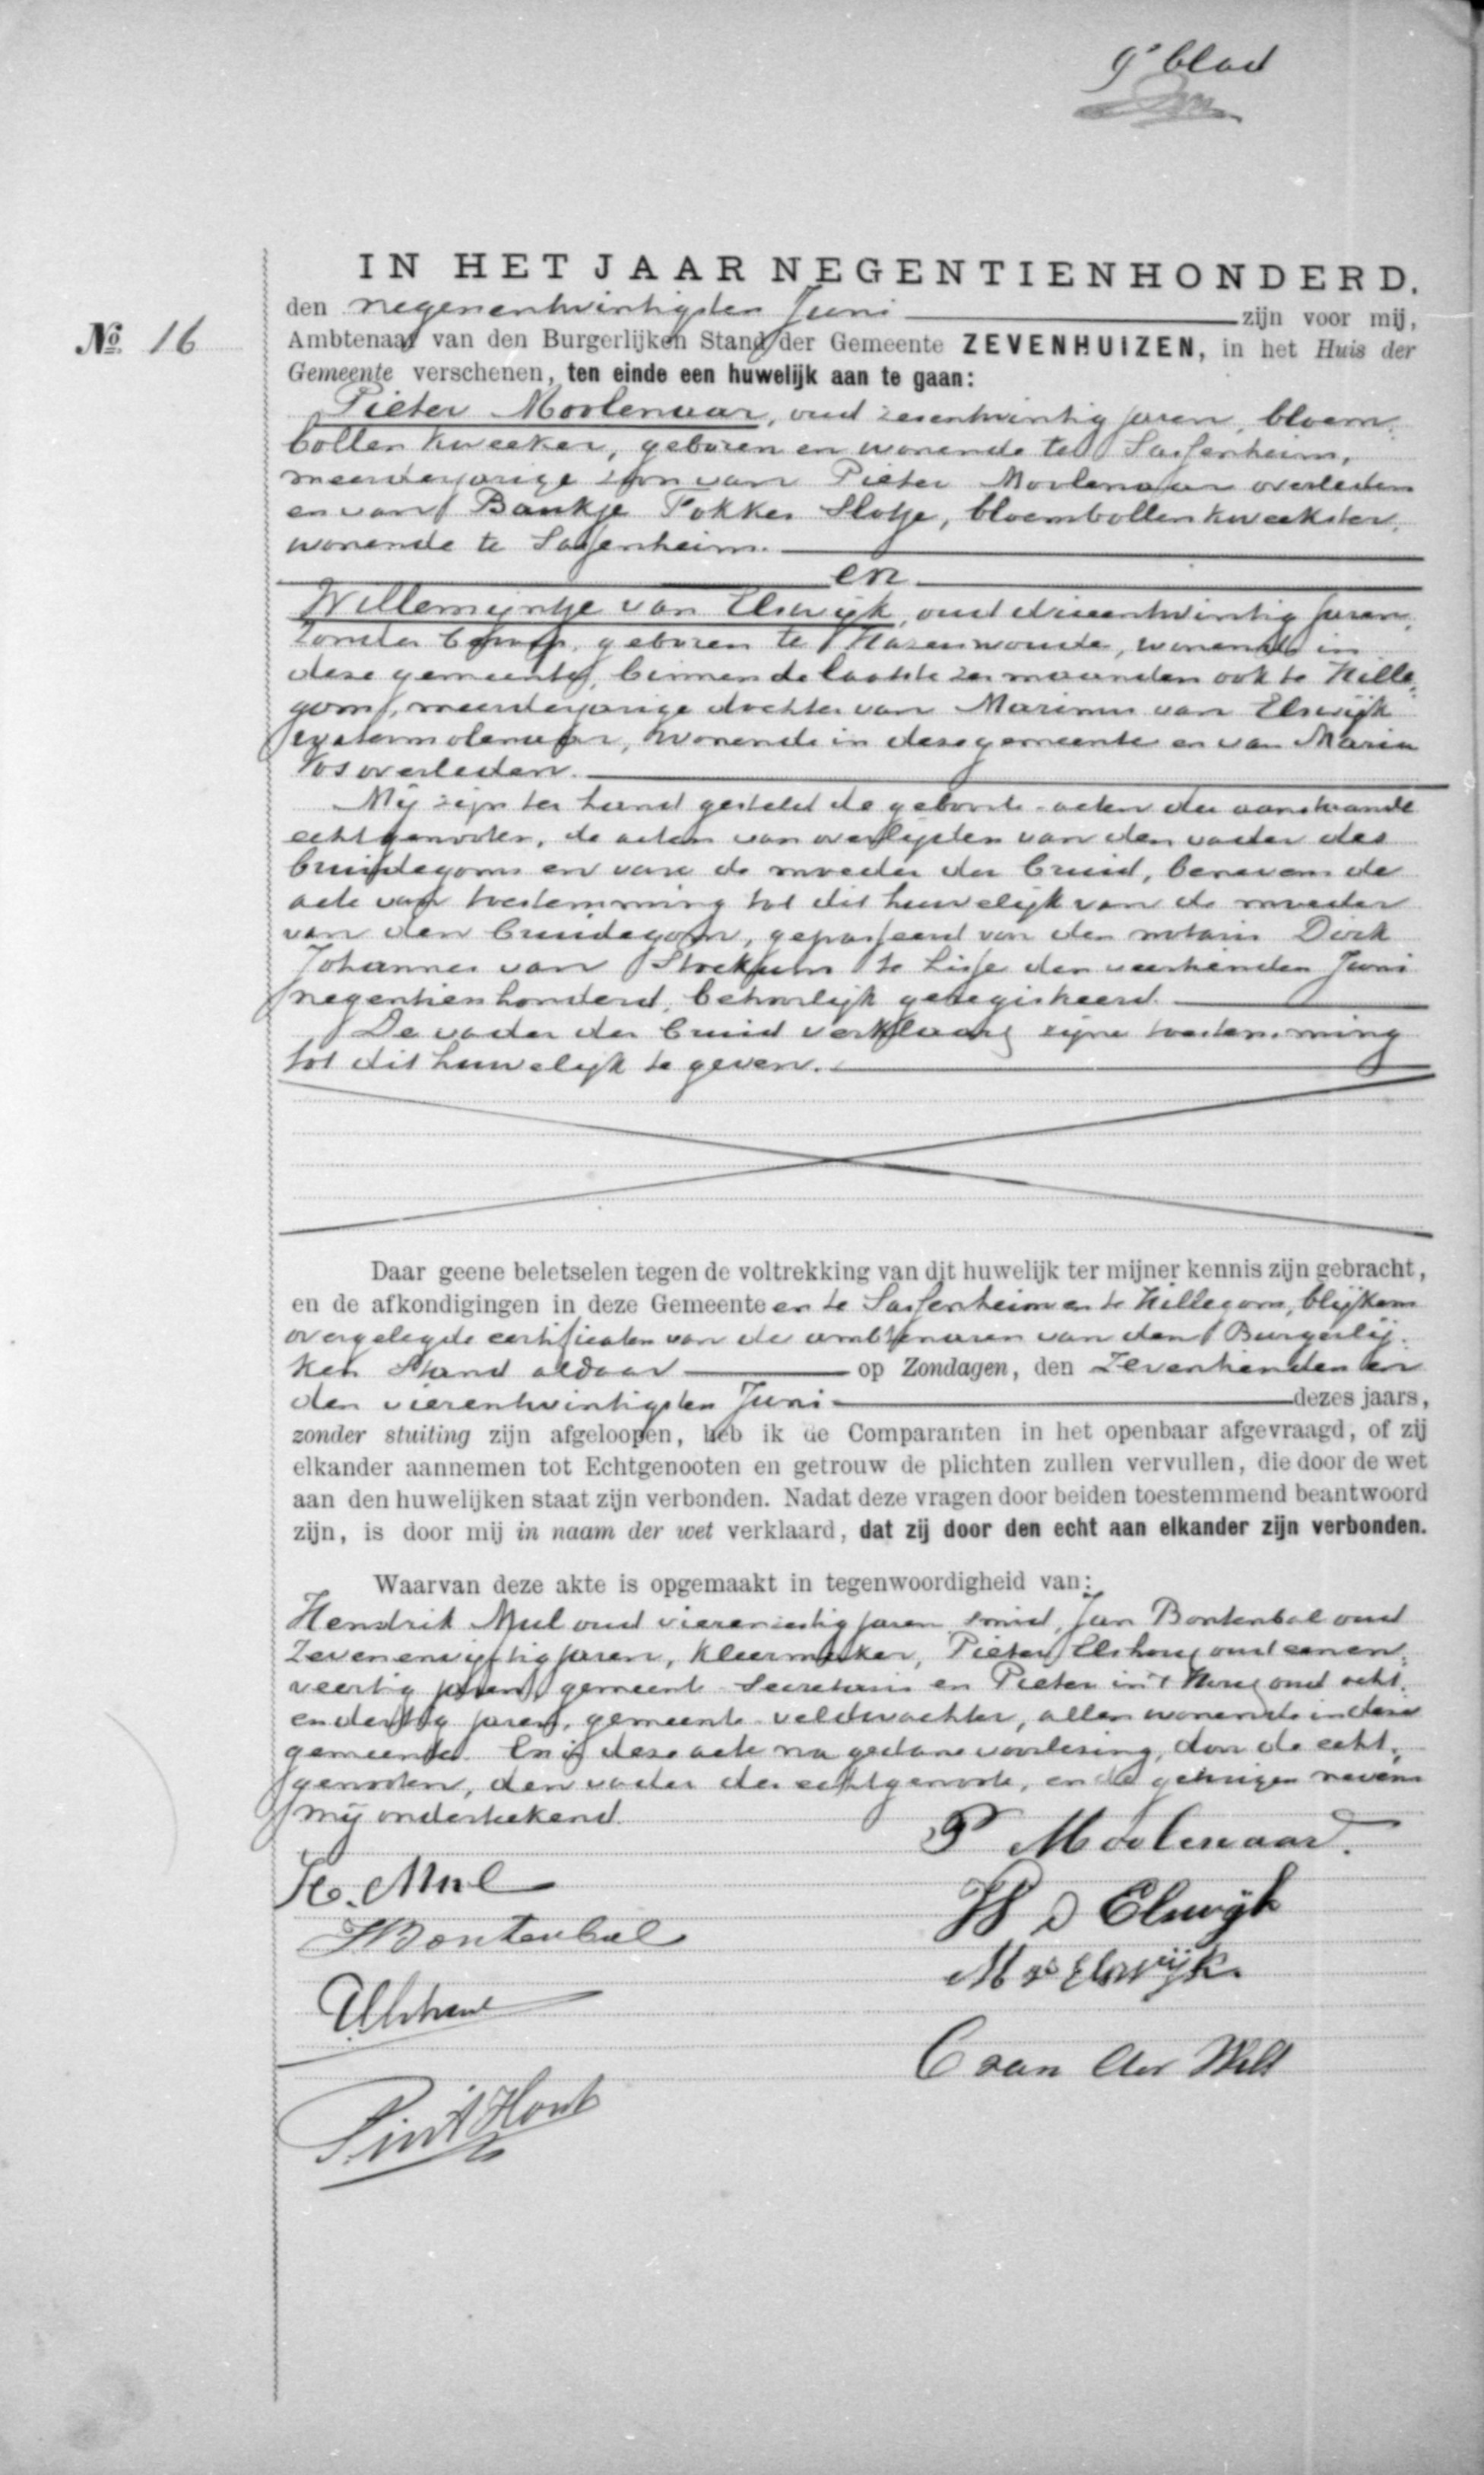 9e blad
IN HET JAAR NEGENTIENHONDERD.
den negenentwintigsten Juni zijn voor mij,
No 16
Ambtenaar van den Burgerlijken Stand der Gemeente ZEVENHUIZEN, in het Huis der
Gemeente verschenen, ten einde een huwelijk aan te gaan:
Pieter Moolenaar, oud zesentwintig jaren, bloem-
bollenkweeker, geboren en wonende te Sassenheim,
meerderjarige zoon van Pieter Moolenaar overleden
en van Baukje Fokkes Slotje, bloembollenkweekster,
wonende te Sassenheim.
en
Willemijntje van Elswijk, oud drieentwintig jaren,
zonder beroep, geboren te Hazerswoude, wonende in
deze gemeente, binnen de laatste zes maanden ook te Hille-
gom, meerderjarige dochter van Marinus van Elswijk
watermolenaar, wonende in deze gemeente en van Maria
Vos overleden.
Mij zijn ter hand gesteld de geboorte-acten der aanstaande
echtgenooten, de acten van overlijden van den vader des
bruidegoms en van de moeder der bruid, benevens de
acte van toestemming tot dit huwelijk van de moeder
van den bruidegom, gepasseerd voor den notaris Dirk
Johannes van Stockum te Lisse den veertienden Juni
negentienhonderd, behoorlijk geregistreerd.
De vader der bruid verklaart zijne toestemming
tot dit huwelijk te geven.
Daar geene beletselen tegen de voltrekking van dit huwelijk ter mijner kennis zijn gebracht,
en de afkondigingen in deze Gemeente en te Sassenheim en te Hillegom, blijkens
overgelegde certificaten van de ambtenaren van den Burgerlij-
ken Stand aldaar op Zondagen, den zeventienden en
den vierentwintigsten Juni dezes jaars,
zonder stuiting zijn afgeloopen, heb ik de Comparanten in het openbaar afgevraagd, of zij
elkander aannemen tot Echtgenooten en getrouw de plichten zullen vervullen, die door de wet
aan den huwelijken staat zijn verbonden. Nadat deze vragen door beiden toestemmend beantwoord
zijn, is door mij in naam der wet verklaard, dat zij door den echt aan elkander zijn verbonden.
Waarvan deze akte is opgemaakt in tegenwoordigheid van:
Hendrik Mul oud vierenzestig jaren, smid, Jan Bontenbal oud
zevenenvijftig jaren, kleermaker, Pieter Elshout oud eenen-
veertig jaren, gemeente-secretaris en Pieter in 't Hout oud acht-
endertig jaren, gemeente-veldwachter, allen wonende in deze
gemeente. En is deze acte na gedane voorlezing, door de echt-
genooten, den vader der echtgenoote, en de getuigen nevens
mij onderteekend.
P Moolenaar.
H. Mul
W v Elswijk
J Bontenbal
M v Elswijk
P Elshout
C van der Welt
P. in 't Hout